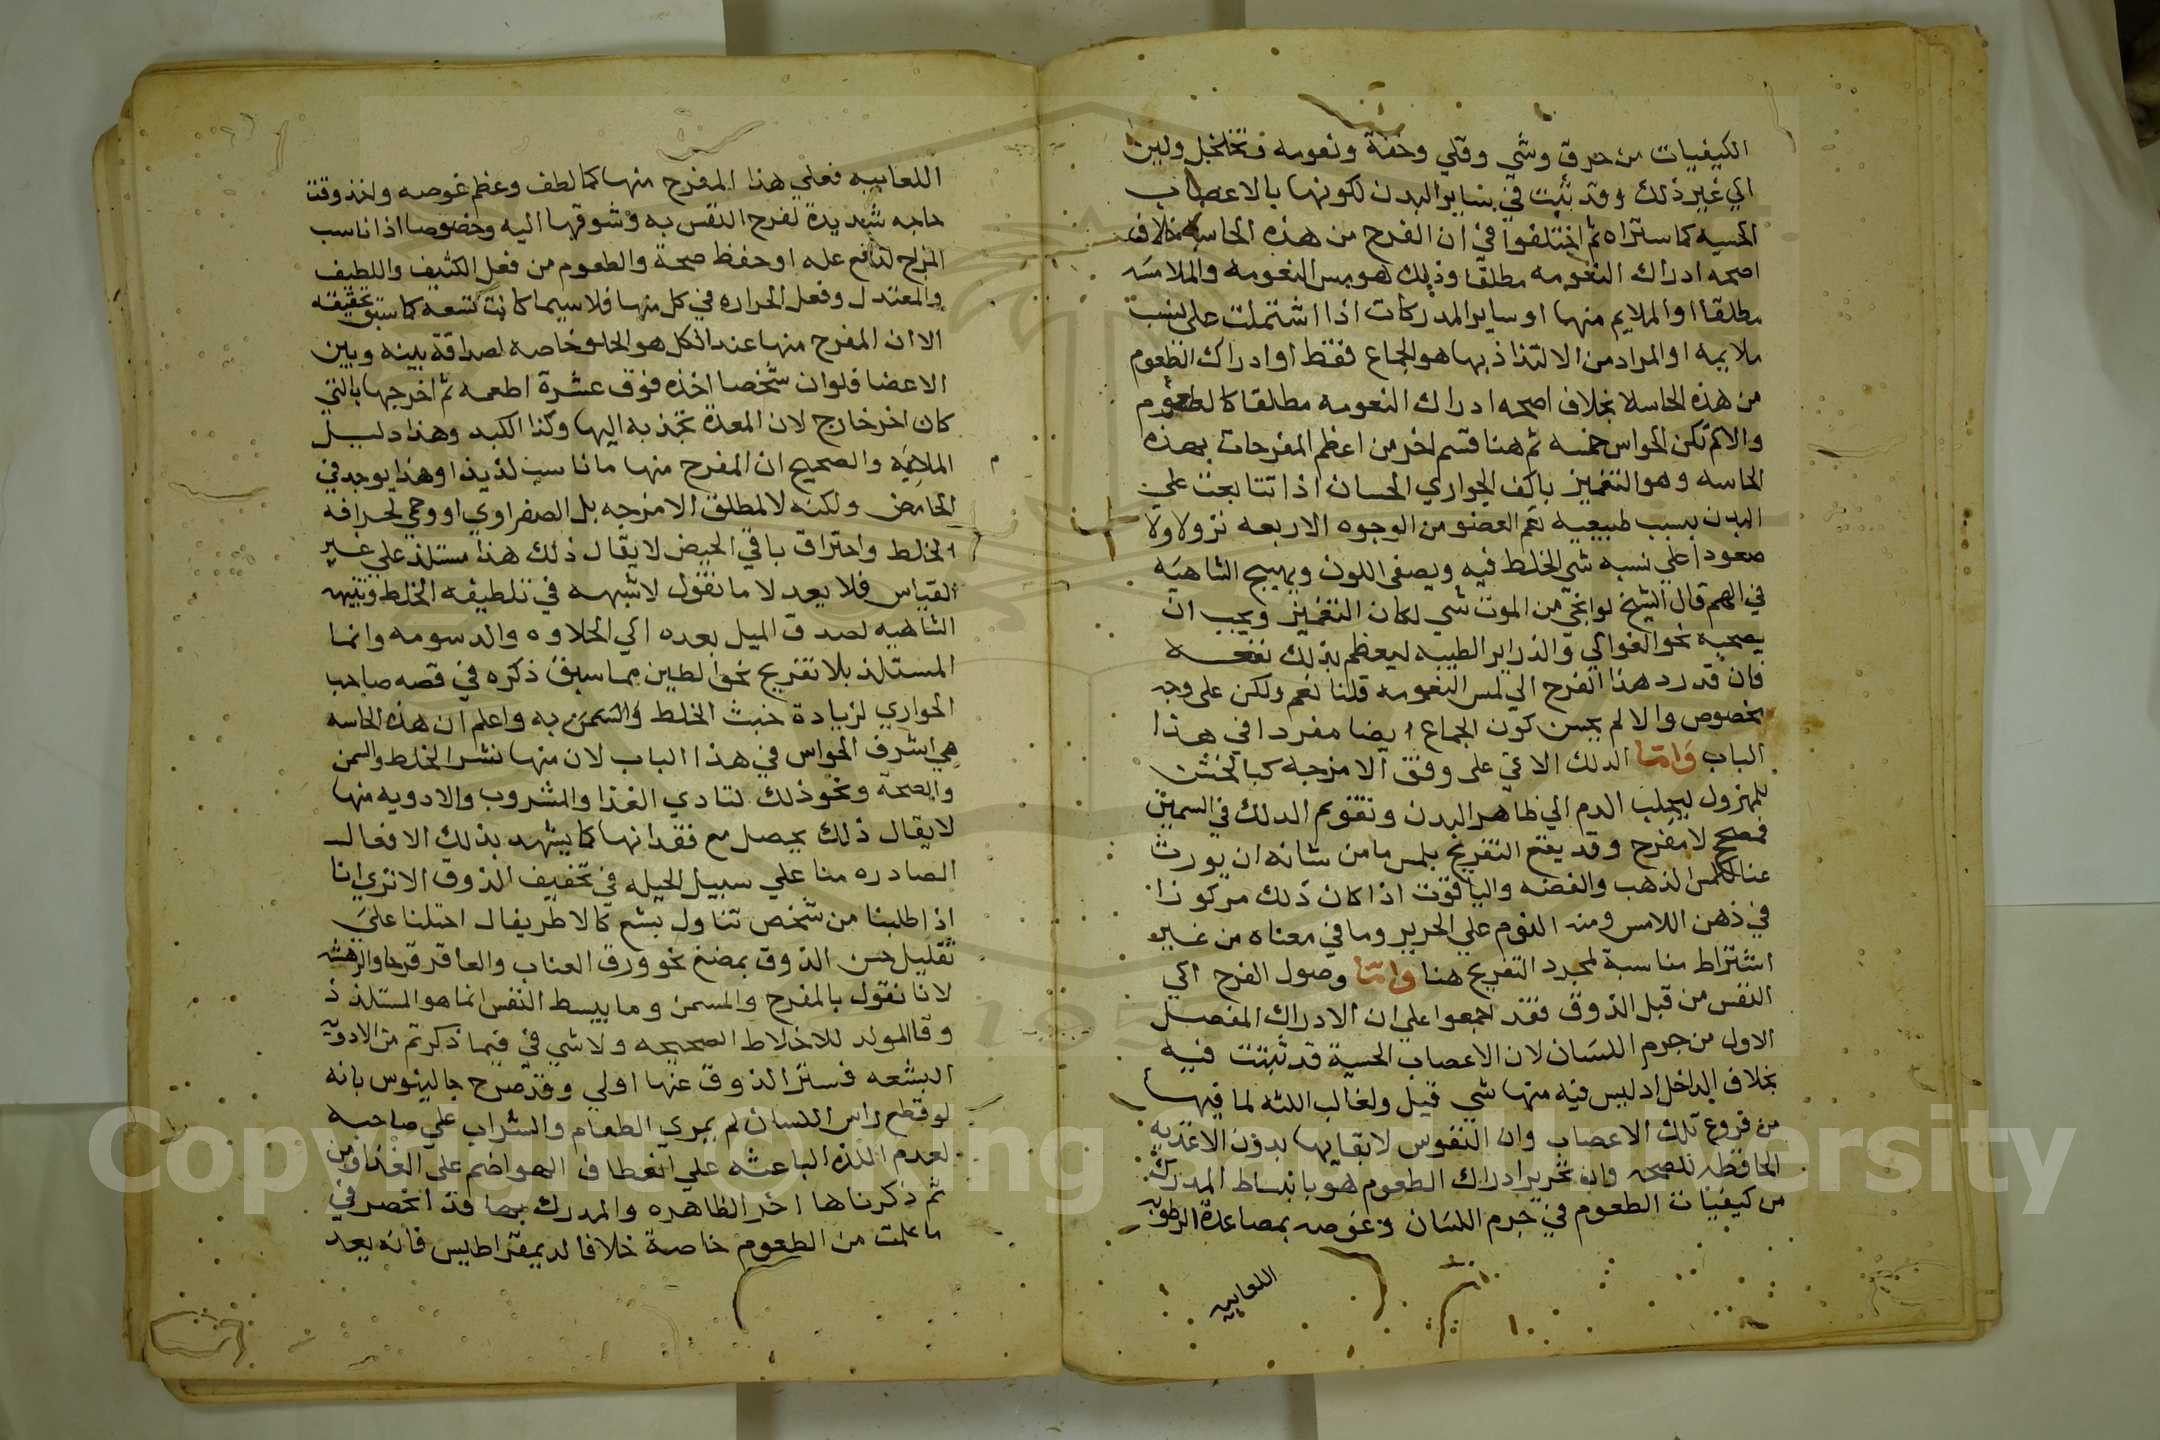 الكيفيات من حرق وشي وقلي وخفة ونعومه وتخلخل ولين
الي غير ذلك وقد بثبت في ساير البدن لكونها بالاعصاب
الحسيه كما ستراه ثم اختلفوا في ان الفرح من هذه الحاسه خلاف
اصحه ادراك النعومه مطلقا وذلك هو مس النعومه والملامسه
مطلقا او الملايم منها او ساير المدركات اذا اشتملت علي نسب
ملايمه او المراد من الالتذاذ بها هو الجماع فقط او ادراك الطعوم
من هذه الحاسه لا بخلاف اصحه ادراك النعومه مطلقا كالطعوم
والا لم تكن الحواس خمسه ثم هنا قسم اخر من اعظم المفرحات بهذه
الحاسه وهو التغميز باكف الجواري الحسان اذا تتابعت علي
البدن بسبب طبيعيه تعم العضو من الوجوه الاربعه نزولا ولا
صعودا علي نسبه شي الخلط فيه ويصفي اللون ويهيج الشاهيه
في الهم قال الشيخ لو انجي من الموت شي لكان التغميز ويجب ان
يصحبه نحو الغوالي والذراير الطيبه ليعظم بذلك نفعه
فان قد رد هذا الفرح الي لمس النعومه قلنا نعم ولكن علي وجه
مخصوص والا لم يحسن كون الجماع ايضا مفردا في هذا
الباب واما الدلك الاتي علي وفق الامزجه كبالخشن
للمهزول ليجلب الدم الي ظاهر البدن وتقويم الدلك في السمين
فمصحح لا مفرح وقد يقع التفريح بلمس ما من شانه ان يورث
عنا كلمس الذهب والفضه والياقوت اذا كان ذلك مركوزا
في ذهن اللامس ومنه النوم علي الحرير وما في معناه من غير
اشتراط مناسبة لمجرد التفريح هنا واما وصول الفرح الي
النفس من قبل الذوق فقد اجمعوا علي ان الادراك المفصل
الاول من جرم اللسان لان الاعصاب الحسية قد ثبتت فيه
بخلاف الداخل اذ ليس فيه منها شي قيل ولغالب اللثه لما فيها
من فروع تلك الاعصاب وان النفوس لا بقا لها بدون الاغذيه
الحافظه للصحه وان تحرير ادراك الطعوم هو بانبساط المدرك
من كيفيات الطعوم في جرم اللسان وغوصه بمصاعدة الرطوبه
اللعابيه
اللعابيه فعلي هذا المفرح منها كما لطف وعظم غوصه واخذ وقت
حاجه شديدة لفرح النفس به وشوقها اليه وخصوصا اذا ناسب
المزاج لدفع عله او حفظ صحة والطعوم من فعل الكثيف واللطيف
والمعتدل وفعل الحراره في كل منها فلا سيما كانت تسعه كما سبق تحقيقه
الا ان المفرح منها عند الكل هو الحلو خاصه لصداقة بينه وبين
الاعضا فلو ان شخصا اخذه فوق عشرة اطعمه ثم اخرجها بالقي
كان اخر خارج لان المعدة تجذبه اليها وكذا الكبد وهذا دليل
الملايمه والصحيح ان المفرح منها ما ناسب لذيذا وهذا يوجد في
الحامض ولكنه لا لمطلق الامزجه بل الصفراوي او وحمي لحرافه
الخلط واحتراق باقي الحيض لا يقال ذلك هذا مستلذ علي غير
القياس فلا يعد لا ما نقول لا شبهه في تلطيفه الخلط وتنبيه
الشاهيه لصدق الميل بعده الي الحلاوه والدسومه وانما
المستلذ بلا تفريح نحو الطين مما سبق ذكره في قصه صاحب
الجواري لزيادة خبث الخلط والسمن به واعلم ان هذه الحاسه
هي اشرف الحواس في هذا الباب لان منها نشر الخلط والسمن
والصحة ونحو ذلك لتادي الغذا والمشروب والادويه منها
لا يقال ذلك يحصل مع فقدانها كما يشهد بذلك الافعال
الصادره منا علي سبيل الحيله في تخفيف الذوق الا تري انا
اذا طلبنا من شخص تناول بشع كالاطريفال احتلنا علي
تقليل حس الذوق بمضغ نحو ورق العناب والعاقرقرحا والرهشه
لانا نقول بالمفرح والمسمن وما يبسط النفس انما هو المستلذ ذ
وقا المولد للاخلاط الصحيحه ولا شي في فيما ذكرتم من الادويه
البشعه فستر الذوق عنها اولي وقد صرح جالينوس بانه
لو قطع راس اللسان لم يمري الطعام والشراب علي صاحبه
لعدم اللذه الباعثه علي انعطاف الهواضم علي الغذا ومن
ثم ذكرناها اخر الظاهره والمدرك بها قد انحصر في
ما علمت من الطعوم خاصة خلافا لديمقراطيس فانه يعد
Copyright © King Saud University